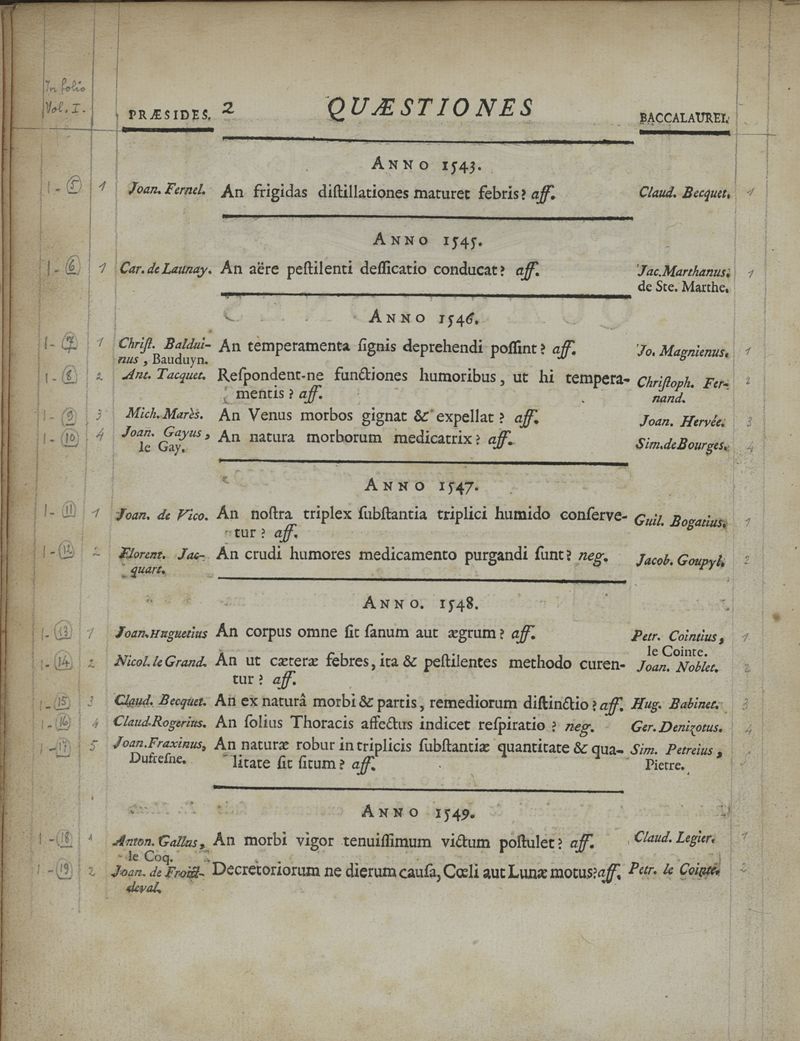 In folio
Vol. I. PRÆSIDES. 2 QUÆSTIONES BACCALAUREI.
ANNO 1543.
1-(5) 1 Joan. Fernel. An frigidas diſtillationes maturet febris? aff. Claud. Becquet. 1
ANNO 1545.
1-(6) 1 Car. de Launay. An aëre peſtilenti deſſicatio conducat? aff. Jac. Marthanus. 1
de Ste. Marthe.
ANNO 1546.
1-(7) 1 Chriſt. Baldui- An temperamenta ſignis deprehendi poſſint? aff. Jo. Magnienus. 1
nus, Bauduyn.
1-(8) 2 Ant. Tacquet. Reſpondent-ne functiones humoribus, ut hi tempera- Chriſtoph. Fer- 2
mentis? aff. nand.
1-(9) 3 Mich. Marès. An Venus morbos gignat & expellat? aff. Joan. Hervée. 3
1-(10) 4 Joan. Gayus, An natura morborum medicatrix? aff. Sim. de Bourges. 4
le Gay.
ANNO 1547.
1-(11) 1 Joan. de Vico. An noſtra triplex ſubſtantia triplici humido conſerve- Guil. Bogatius. 1
tur? aff.
1-(12) 2 Florent. Jac- An crudi humores medicamento purgandi ſunt? neg. Jacob. Goupyl. 2
quart.
ANNO. 1548.
1-(13) 1 Joan. Huguetius An corpus omne ſit ſanum aut ægrum? aff. Petr. Cointius, 1
le Cointe.
1-(14) 2 Nicol. le Grand. An ut cæteræ febres, ita & peſtilentes methodo curen- Joan. Noblet. 2
tur? aff.
1-(15) 3 Claud. Becquet. An ex naturâ morbi & partis, remediorum diſtinctio? aff. Hug. Babinet. 3
1-(16) 4 Claud. Rogerius. An ſolius Thoracis affectus indicet reſpiratio? neg. Ger. Denizotus. 4
1-(17) 5 Joan. Fraxinus, An naturæ robur in triplicis ſubſtantiæ quantitate & qua- Sim. Petreius,
Dufreſne. litate ſit ſitum? aff. Pietre.
ANNO 1549.
1-(18) 1 Anton. Gallus, An morbi vigor tenuiſſimum victum poſtulet? aff. Claud. Legier. 1
le Coq.
1-(19) 2 Joan. de Decretoriorum ne dierum cauſa, Cœli aut Lunæ motus? aff. Petr. le Cointe. 2
deval.